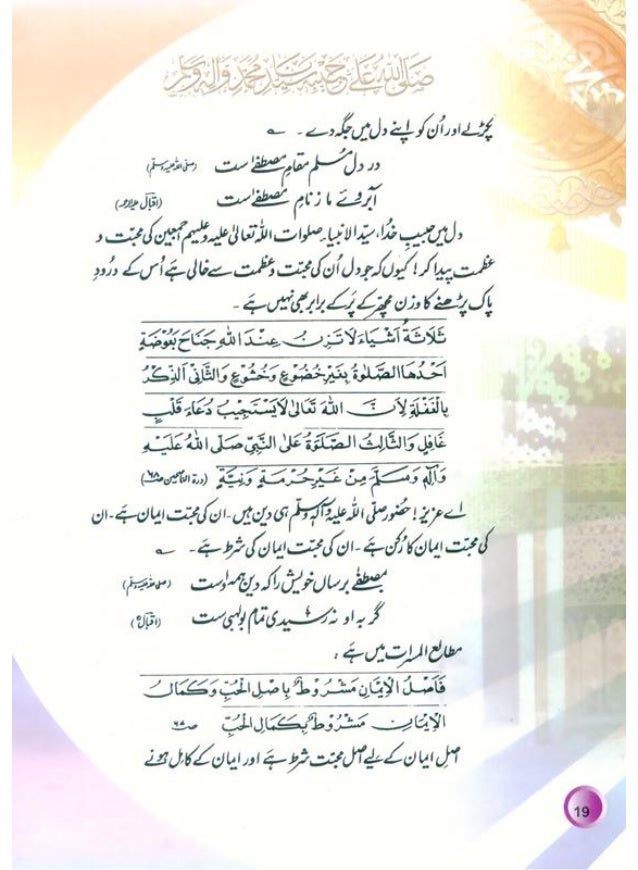 صَلَّى اللهُ عَلٰى حَبِيْبِهٖ سَيِّدِنَا مُحَمَّدٍ وَّاٰلِهٖ وَسَلَّمَ
پکڑلے اور اُن کو اپنے دل میں جگہ دے ۔ ؎
در دل مُسلم مقامِ مصطفےٰ است (صلی اللہ علیہ وسلم)
آبروئے ما ز نامِ مصطفےٰ است (اقبالؔ علیہ الرحمہ)
دل میں حبیبِ خدا، سیّد الانبیاء صلوات اللہ تعالیٰ علیہ وعلیہم اجمعین کی محبّت و
عظمت پیدا کر! کیوں کہ جو دل اُن کی محبّت و عظمت سے خالی ہے اُس کے درُودِ
پاک پڑھنے کا وزن مچھر کے پَر کے برابر بھی نہیں ہے ۔
ثَلَاثَةُ اَشْيَاءَ لَا تَزِنُ عِنْدَ اللهِ جَنَاحَ بَعُوْضَةٍ
اَحَدُهَا الصَّلٰوةُ بِغَيْرِ خُضُوْعٍ وَخُشُوْعٍ وَالثَّانِي اَلذِّكْرُ
بِالْغَفْلَةِ لِاَنَّ اللهَ تَعَالٰى لَا يَسْتَجِيْبُ دُعَاءَ قَلْبٍ
غَافِلٍ وَالثَّالِثُ الصَّلٰوةُ عَلَى النَّبِيِّ صَلَّى اللهُ عَلَيْهِ
وَاٰلِهٖ وَسَلَّمَ مِنْ غَيْرِ حُرْمَةٍ وَنِيَّةٍ (درة الناصحین ص۶۸)
اے عزیز! حضُور صلّی اللہ علیہ وآلہٖ وسلّم ہی دین ہیں۔ ان کی محبّت ایمان ہے۔ ان
کی محبّت ایمان کا رُکن ہے ۔ ان کی محبّت ایمان کی شرط ہے ۔ ؎
بمصطفٰے برساں خویش را کہ دین ہمہ اوست (صلی اللہ علیہ وسلم)
گر بہ او نہ رسیدی تمام بولہبی ست (اقبالؔ)
مطالع المسرات میں ہے :
فَاَصْلُ الْاِيْمَانِ مَشْرُوْطٌ بِاَصْلِ الْحُبِّ وَكَمَالُ
الْاِيْمَانِ مَشْرُوْطٌ بِكَمَالِ الْحُبِّ ص۶۷
اصل ایمان کے لیے اصل محبّت شرط ہے اور ایمان کے کامل ہونے
19